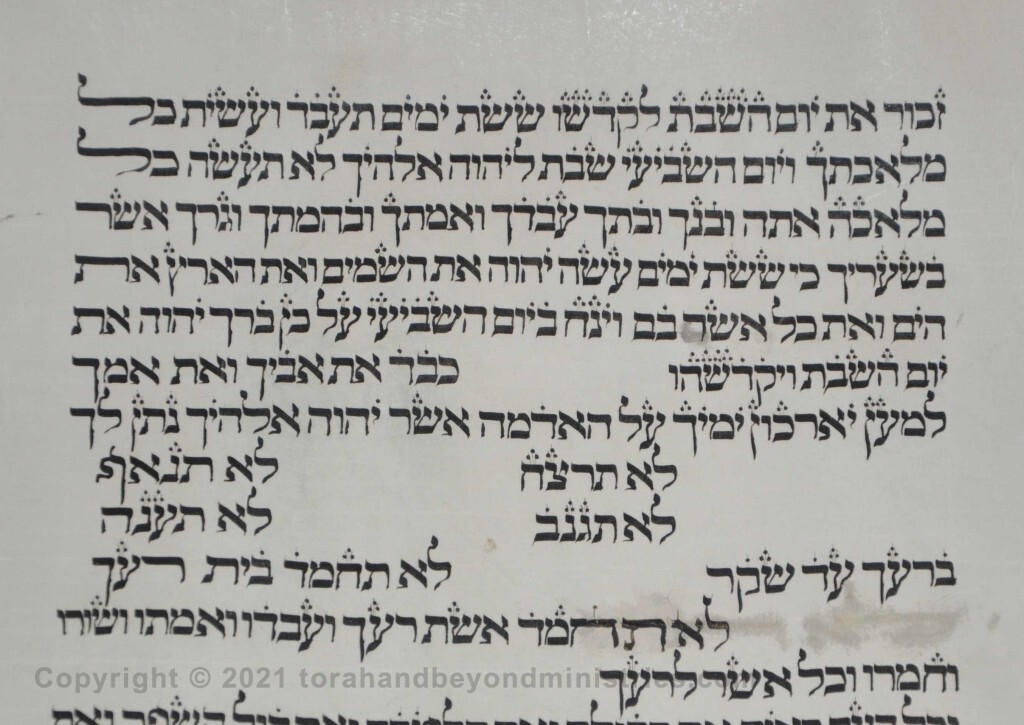 זכור את יום השבת לקדשו ששת ימים תעבד ועשית כל
מלאכתך ויום השביעי שבת ליהוה אלהיך לא תעשה כל
מלאכה אתה ובנך ובתך עבדך ואמתך ובהמתך וגרך אשר
בשעריך כי ששת ימים עשה יהוה את השמים ואת הארץ את
הים ואת כל אשר בם וינח ביום השביעי על כן ברך יהוה את
יום השבת ויקדשהו כבד את אביך ואת אמך
למען יארכון ימיך על האדמה אשר יהוה אלהיך נתן לך
לא תרצח לא תנאף
לא תגנב לא תענה
ברעך עד שקר לא תחמד בית רעך
לא תחמד אשת רעך ועבדו ואמתו ושורו
וחמרו וכל אשר לרעך
Copyright © 2021 torahandbeyondministries.co